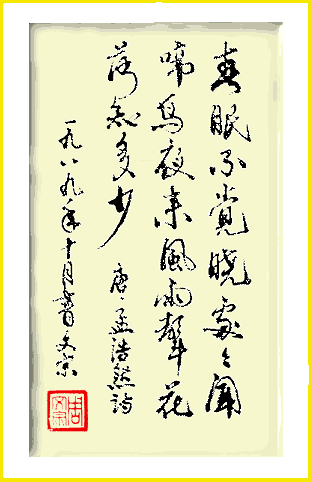 春眠不覺曉處々聞
啼鳥夜来風雨聲花
落知多少 唐、孟浩然詩
一九八九年十月書文宗
周文宗